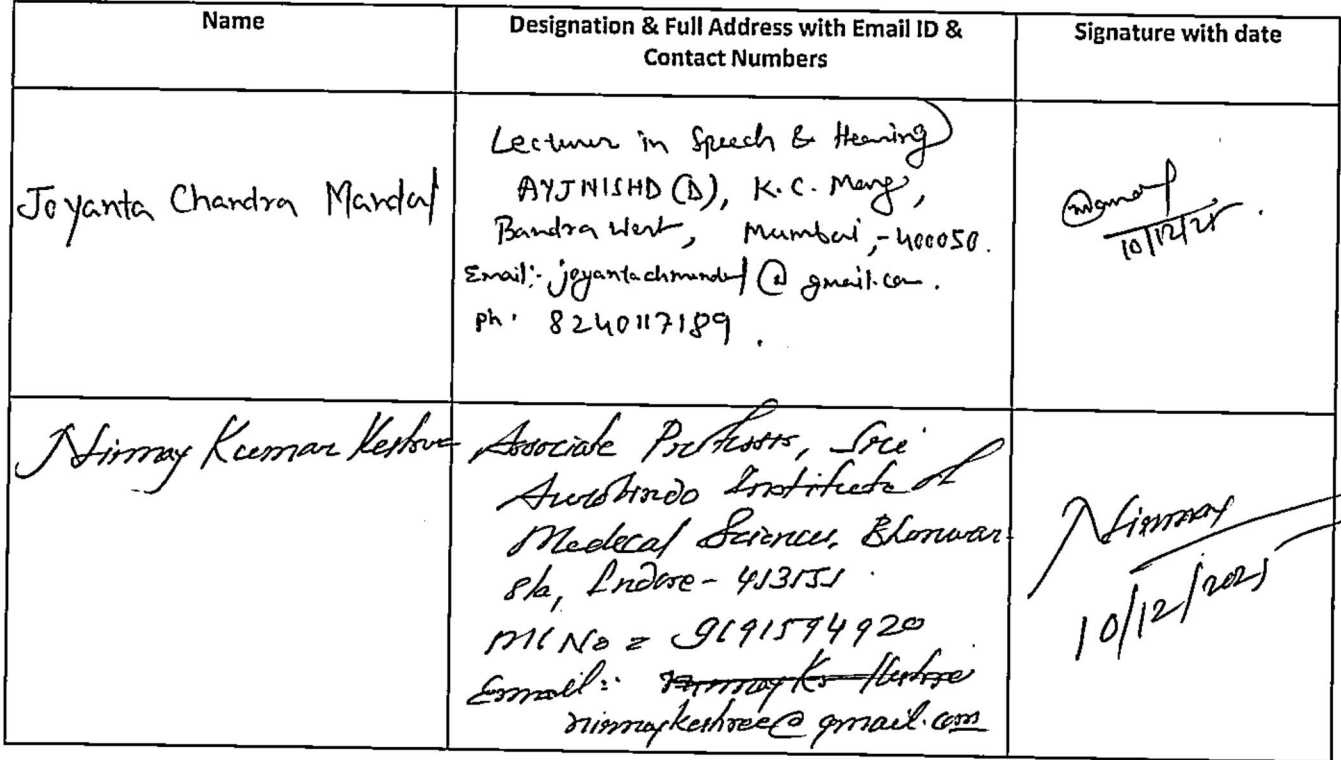 Name
Designation & Full Address with Email ID &
Contact Numbers
Signature with date
Joyanta Chandra Mandal
Lecturer in Speech & Hearing
AYJNISHD (D), K.C. Marg,
Bandra West, Mumbai,-400050.
Email:- joyantachmandal@gmail.com.
Ph. 8240117189.
10/12/25
Nirmay Kumar Keshree
Associate Professor, Sri
Aurobindo Institute of
Medical Sciences, Bhonwar
sla, Indore-
Ml No =
Email:
nirmaykeshree@gmail.com
Nirmay
10/12/2025